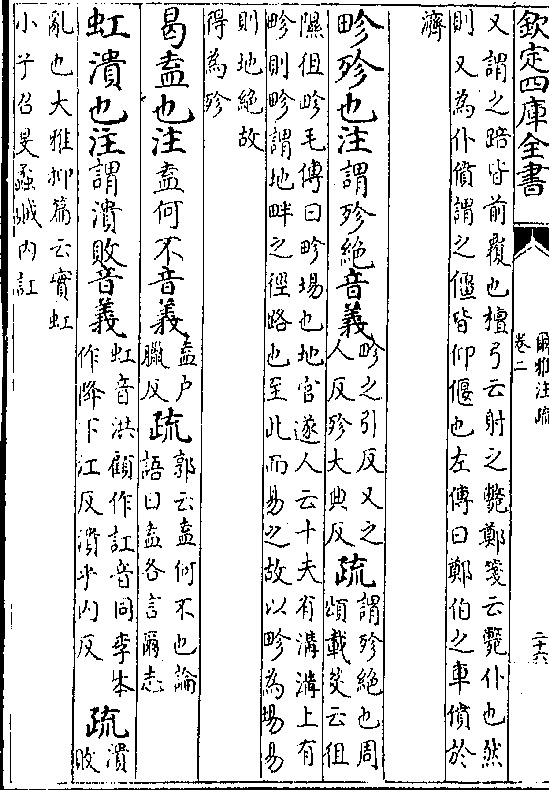 欽定四庫全書
爾雅注疏
卷二
二十六
又謂之踣皆前覆也檀弓云射之斃鄭箋云斃仆也然
則又為仆僨謂之僵皆仰偃也左傳曰鄭伯之車僨於
濟
畛殄也注謂殄絶音義畛之引反又之
人反殄大典反疏謂殄絶也周
頌載芟云徂
隰徂畛毛傳曰畛場也地官遂人云十夫有溝溝上有
畛則畛謂地畔之徑路也至此而易之故以畛為場易
則地絶故
得為殄
曷盍也注盍何不音義盍户
臘反疏郭云盍何不也論
語曰盍各言爾志
虹潰也注謂潰敗音義虹音洪顧作訌音同李本
作降下江反潰乎内反疏潰
敗
亂也大雅抑篇云實虹
小子召旻蟊賊内訌